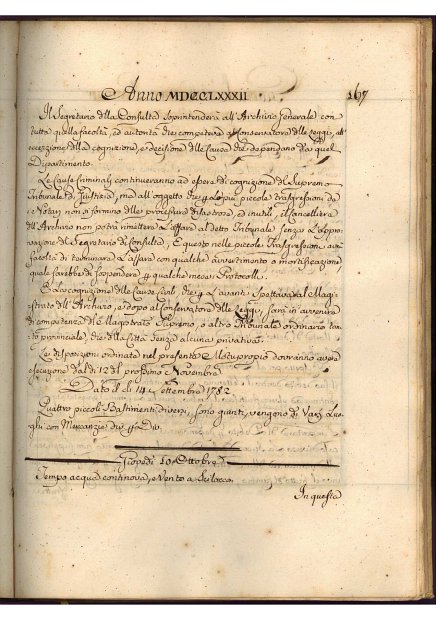 Anno MDCCLXXXII 167
Il Segretario della Consulta soprintenderà all'Archivio Generale con
tutta quella facoltà, ed autorità che competeva al Conservatore delle Leggi, all'
eccezione della cognizione, e decisione delle Cause che dependano da quel
Dipartimento.
Le Cause Criminali continueranno ad essere di cognizione del Supremo
Tribunale di Giustizia, ma all'oggetto che le piccole trasgressioni de
Notary non si formino delle procedure disastrose, ed inutili, il Cancelliere
dell'Archivio non potrà rimettere l'affare al detto Tribunale senza l'appro-
vazione del Segretario di Consulta, E questo nelle piccole Trasgressioni avrà
facoltà di terminare l'affare con qualche avvertimento o mortificazione,
quale sarebbe di sospendere qualche mese i Protocolli.
E la cognizione delle Cause Civili che l'avanti spettava al Magi-
strato dell'Archivio, e dopo al Conservatore delle Leggi, sarà in avvenire
di competenza del Magistrato Supremo, o altro Tribunale ordinario tan-
to provinciale, che della Città senza alcuna privativa.
Le disposizioni ordinate nel presente Motuproprio dovranno avere
esecuzione dal dì 12 del prossimo Novembre
Dato lì 14 Settembre 1782
Quattro piccoli Bastimenti diversi, sono giunti, vengono di Varj Luo-
ghi con Mercanzie
Giovedì 10 Ottobre
Tempo acqua continova, e Vento a Scilocco.
In questa